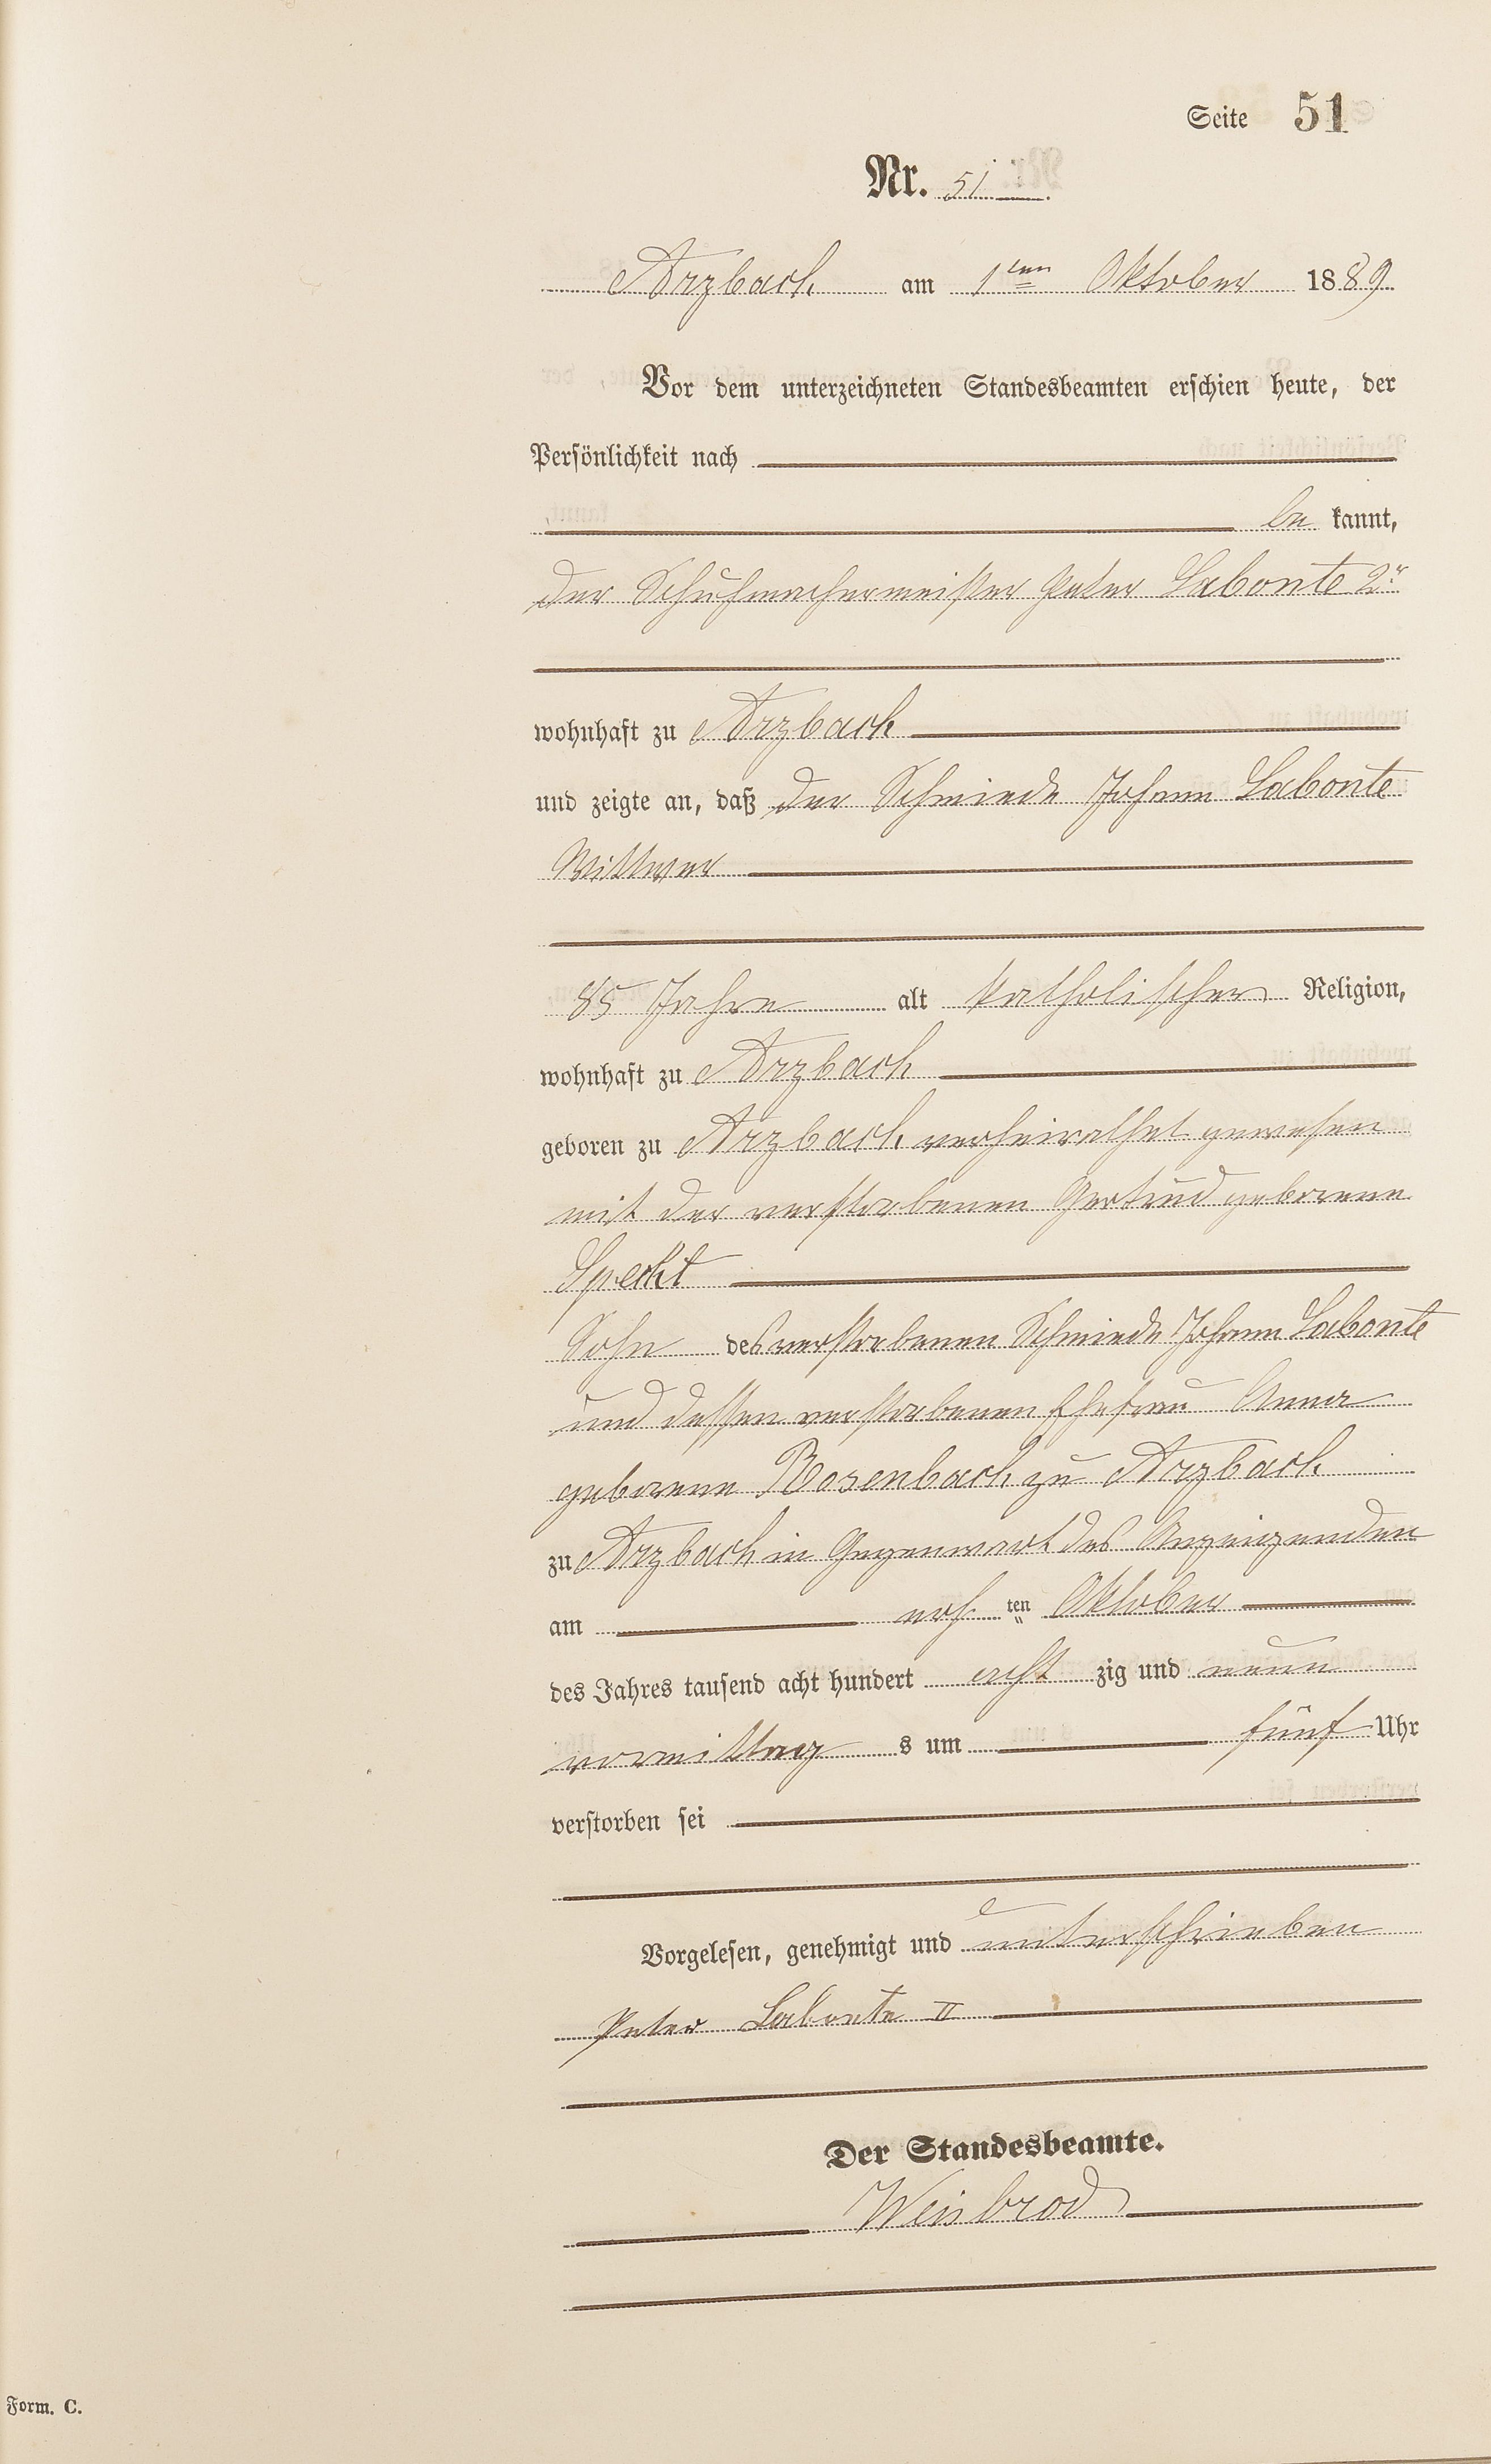 Seite 51
Nr. 51
Arzbach am 1ten Oktober 1889
Vor dem unterzeichneten Standesbeamten erschien heute, der
Persönlichkeit nach
be kannt,
der Schuhmachermeister Peter Labonte 2r
wohnhaft zu Arzbach
und zeigte an, daß der Schmiede Johann Labonte
Wittwer
85 Jahre alt katholischer Religion,
wohnhaft zu Arzbach
geboren zu Arzbach, verheirathet gewesen
mit der verstorbenen Gertrud geborene
Specht
Sohn des verstorbenen Schmiede Johann Labonte
und dessen verstorbenen Ehefrau Anna
geborene Rosenbach zu Arzbach
zu Arzbach in Gegenwart des Anzeigenden
am ten Oktober
des Jahres tausend acht hundert acht zig und neun
vormittag s um fünf Uhr
verstorben sei
Vorgelesen, genehmigt und unterschrieben
Peter Labonte II
Der Standesbeamte.
Weisbrod
Form. C.